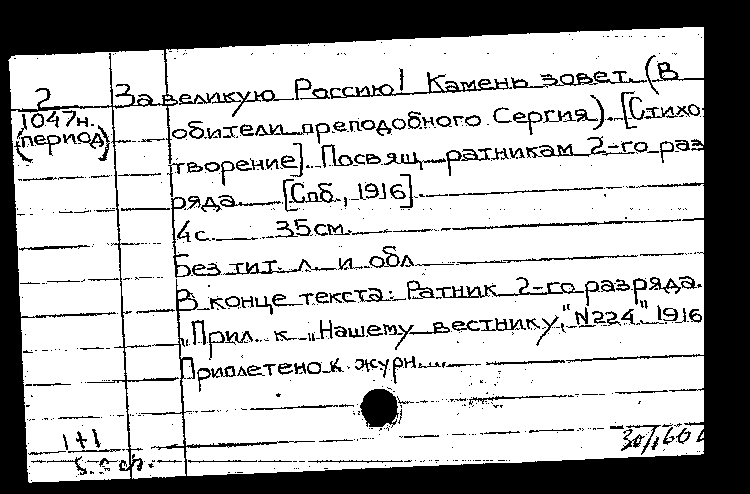 2
1047н.
(период)
За великую Россию! Камень зовет. (В
обители преподобного Сергия). [Стихо-
творение]. Посвящ. ратникам 2-го раз
ряда. [Спб., 1916].
4с. 35см.
Без тит. л. и обл
В конце текста: Ратник 2-го разряда.
"Прил. к „Нашему вестнику", №224." 1916
Приплетено к журн....
1+1